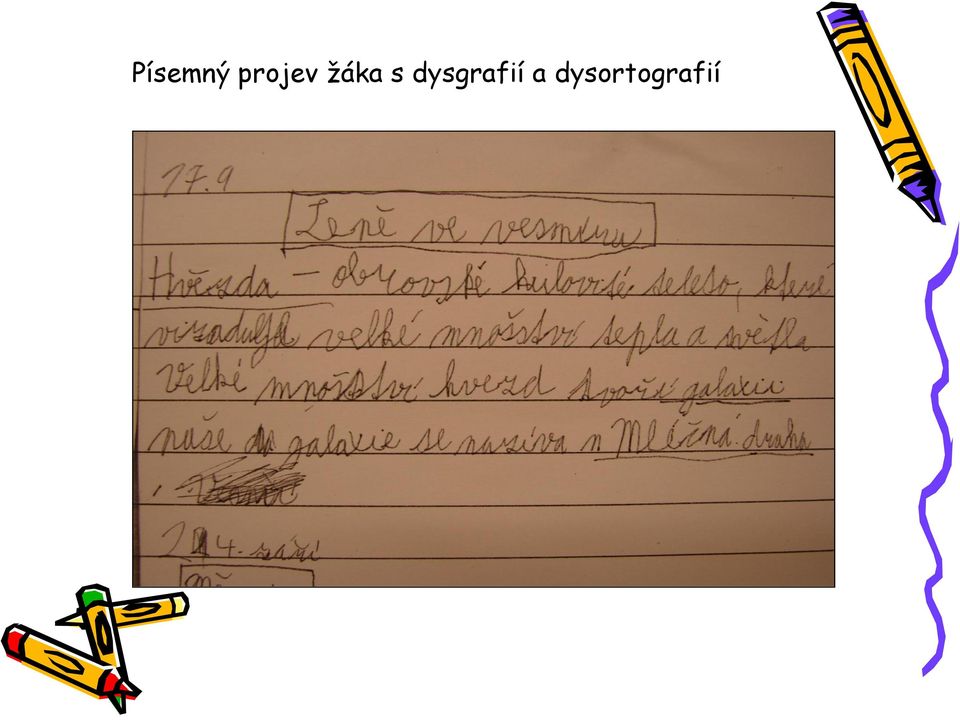 Písemný projev žáka s dysgrafií a dysortografií
17.9
Země ve vesmíru
Hvězda – obrovzké kulovité teleto, které
vizaduje velké množství tepla a světla
Velké množství hvezd tvoří galaxii
naše galaxie se naziva Mléčná draha
24. září